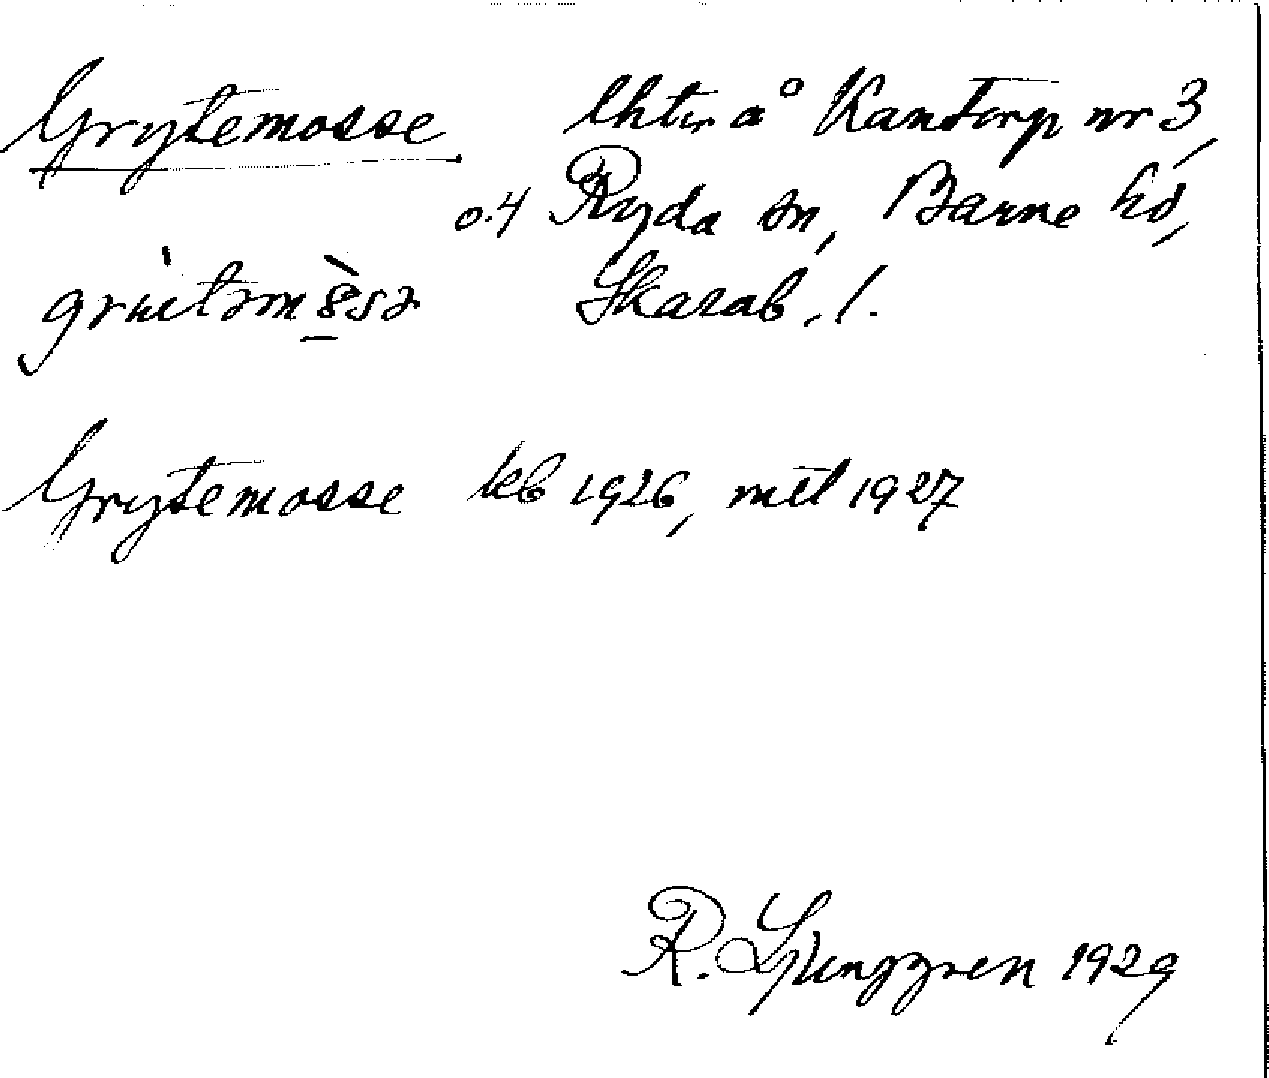 Grytemosse lht:er å Kantorp nr 3,
o. 4 Ryda sn, Barne hd,
Skarab. l.
Grytemosse kb 1926, mtl 1927
R. Ljunggren 1929